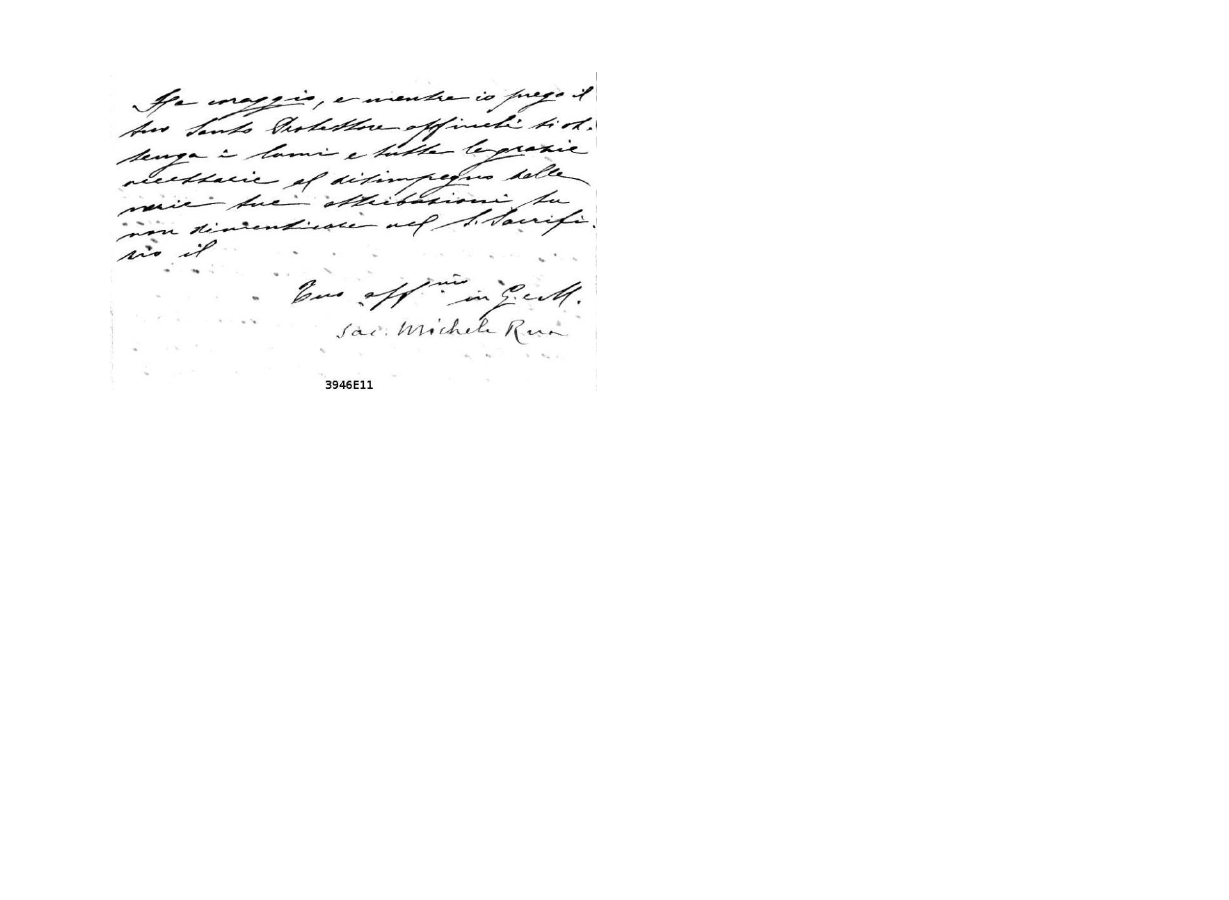 Fa coraggio, e mentre io prego il
tuo Santo Protettore affinchè ti ot-
tenga i lumi e tutte le grazie
necessarie al disimpegno delle
varie tue attribuzioni tu
non dimenticare nel S. Sacrifi-
zio il
Tuo aff.mo in G. e M.
Sac. Michele Rua
3946E11